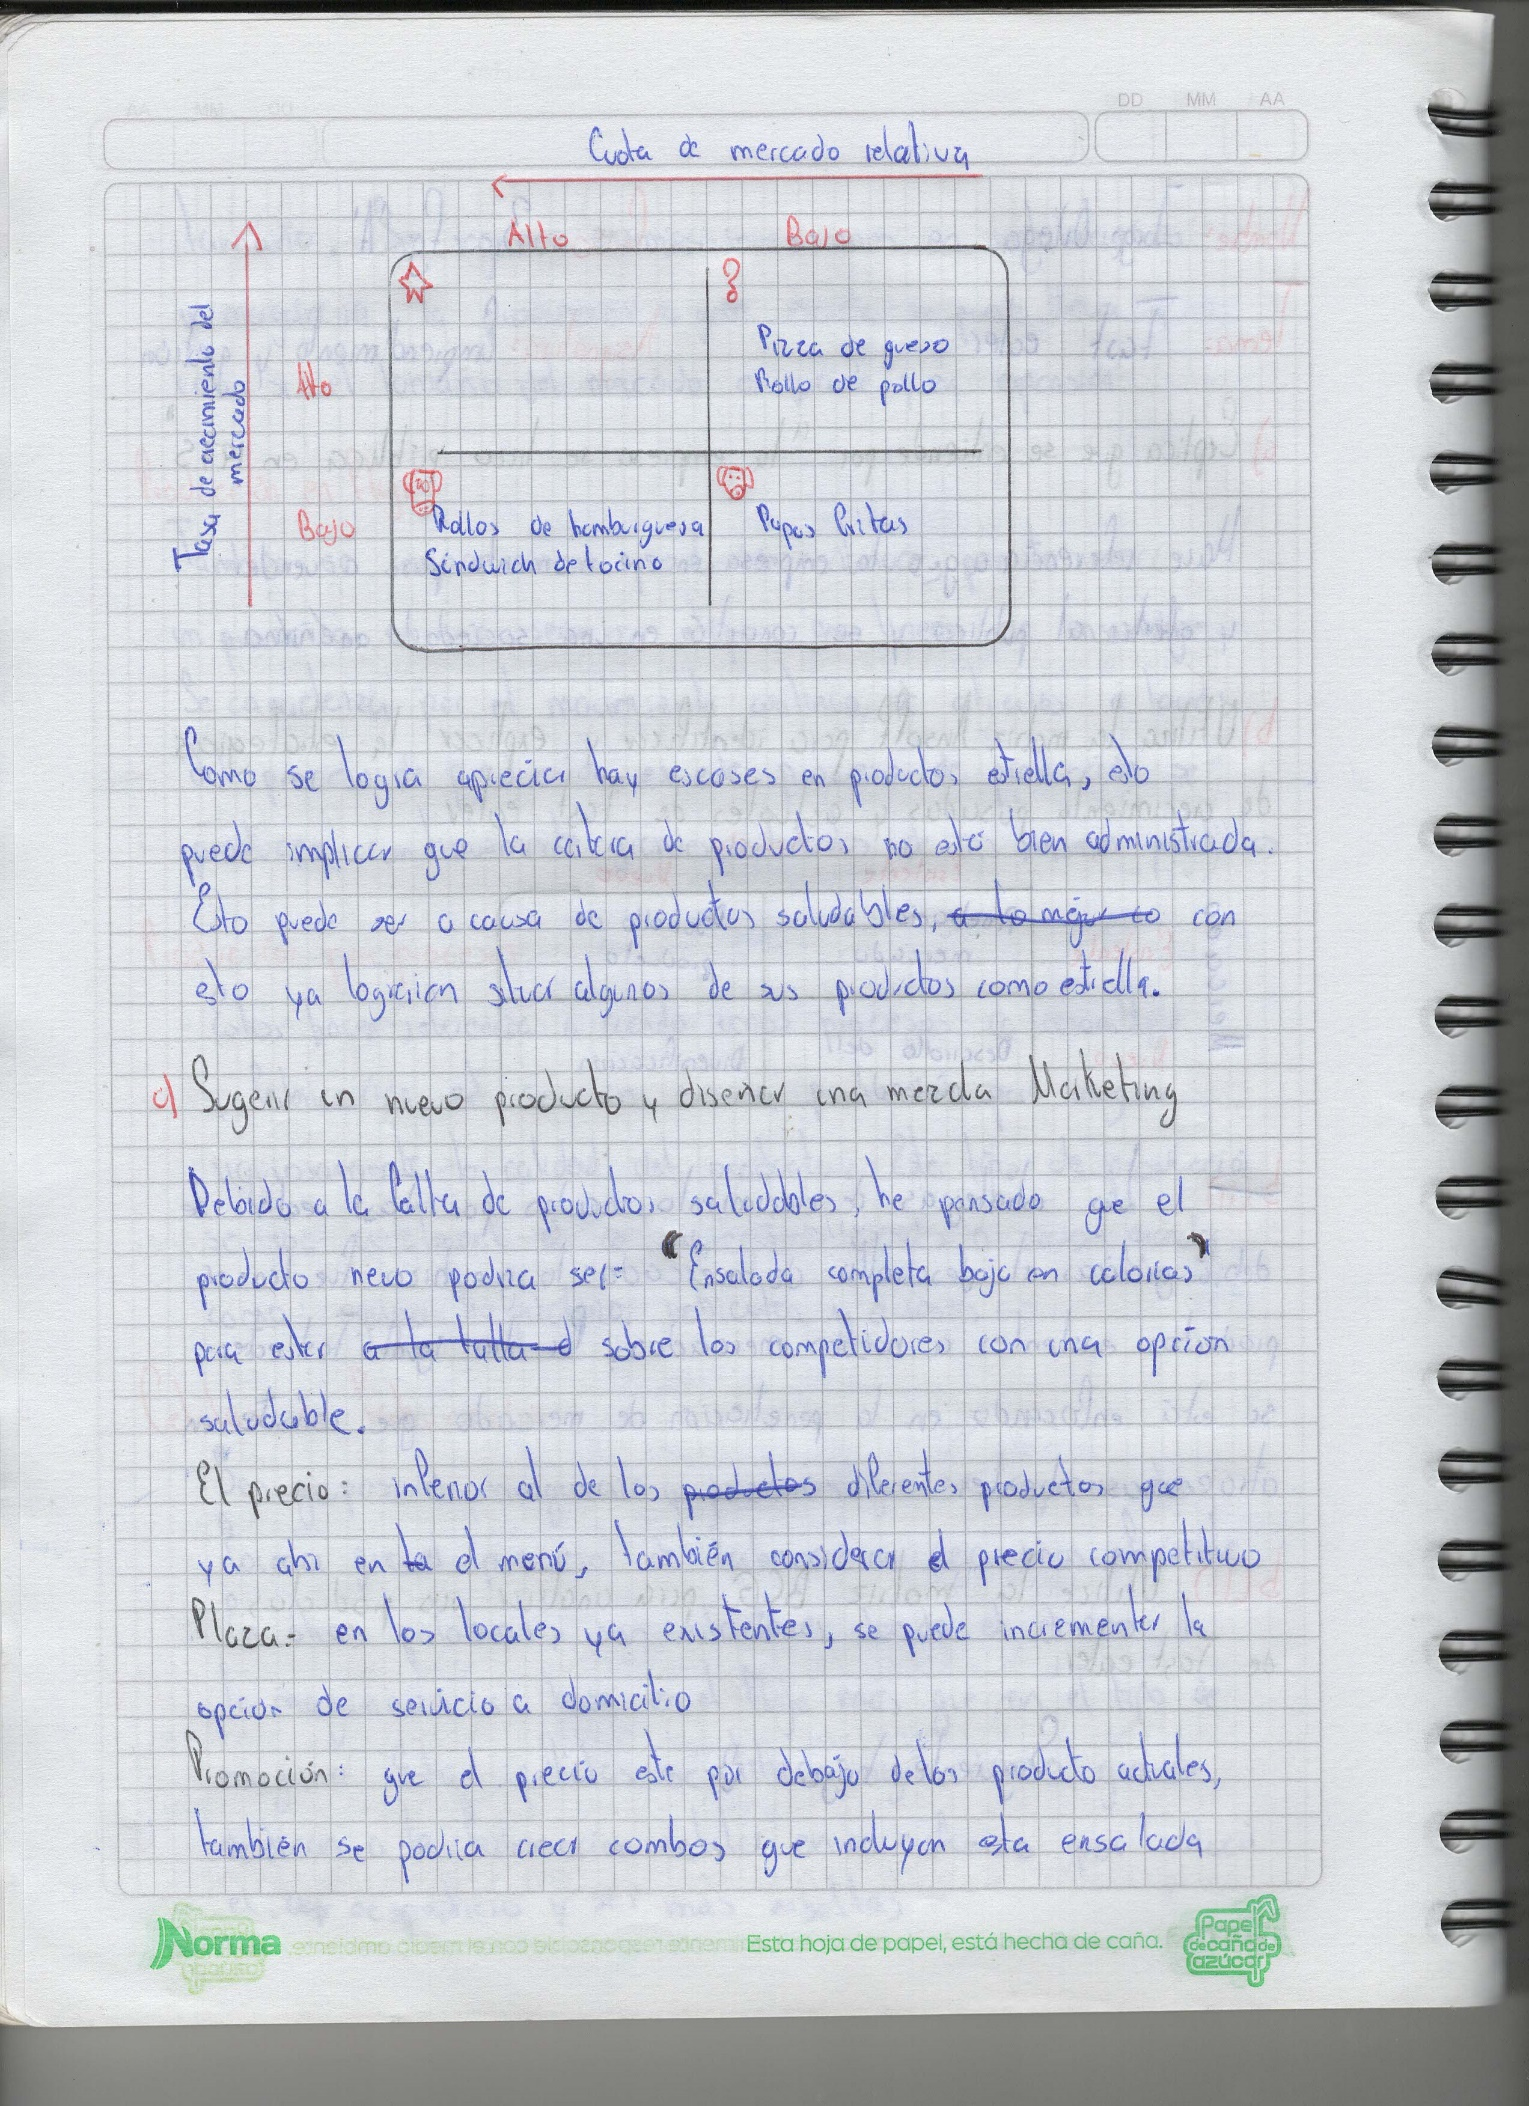 DD MM AA
Cuota de mercado relativa
Alto Bajo
Tasa de crecimiento del
mercado
Alto
Pizza de queso
Rollo de pollo
Bajo
Rollos de hamburguesa
Sándwich de tocino
Papas fritas
Como se logra apreciar hay escoses en productos estrella, esto
puede implicar que la cartera de productos no está bien administrada.
Esto puede ser a causa de productos saludables, a lo mejor co con
esto ya lograrían situar algunos de sus productos como estrella.
c) Sugerir un nuevo producto y diseñar una mezcla Marketing
Debido a la falta de productos saludables, he pensado que el
producto nevo podria ser: "Ensalada completa baja en calorias"
para estar a la talla d sobre los competidores con una opción
saludable.
El precio: inferior al de los productos diferentes productos que
ya ahi en la el menú, también considerar el precio competitivo
Plaza:- en los locales ya existentes, se puede incrementar la
opcion de servicio a domicilio
Promoción: que el precio este por debajo de los producto actuales,
también se podria crear combos que incluyan esta ensalada
Norma
Esta hoja de papel, está hecha de caña.
Papel
de caña de
azúcar